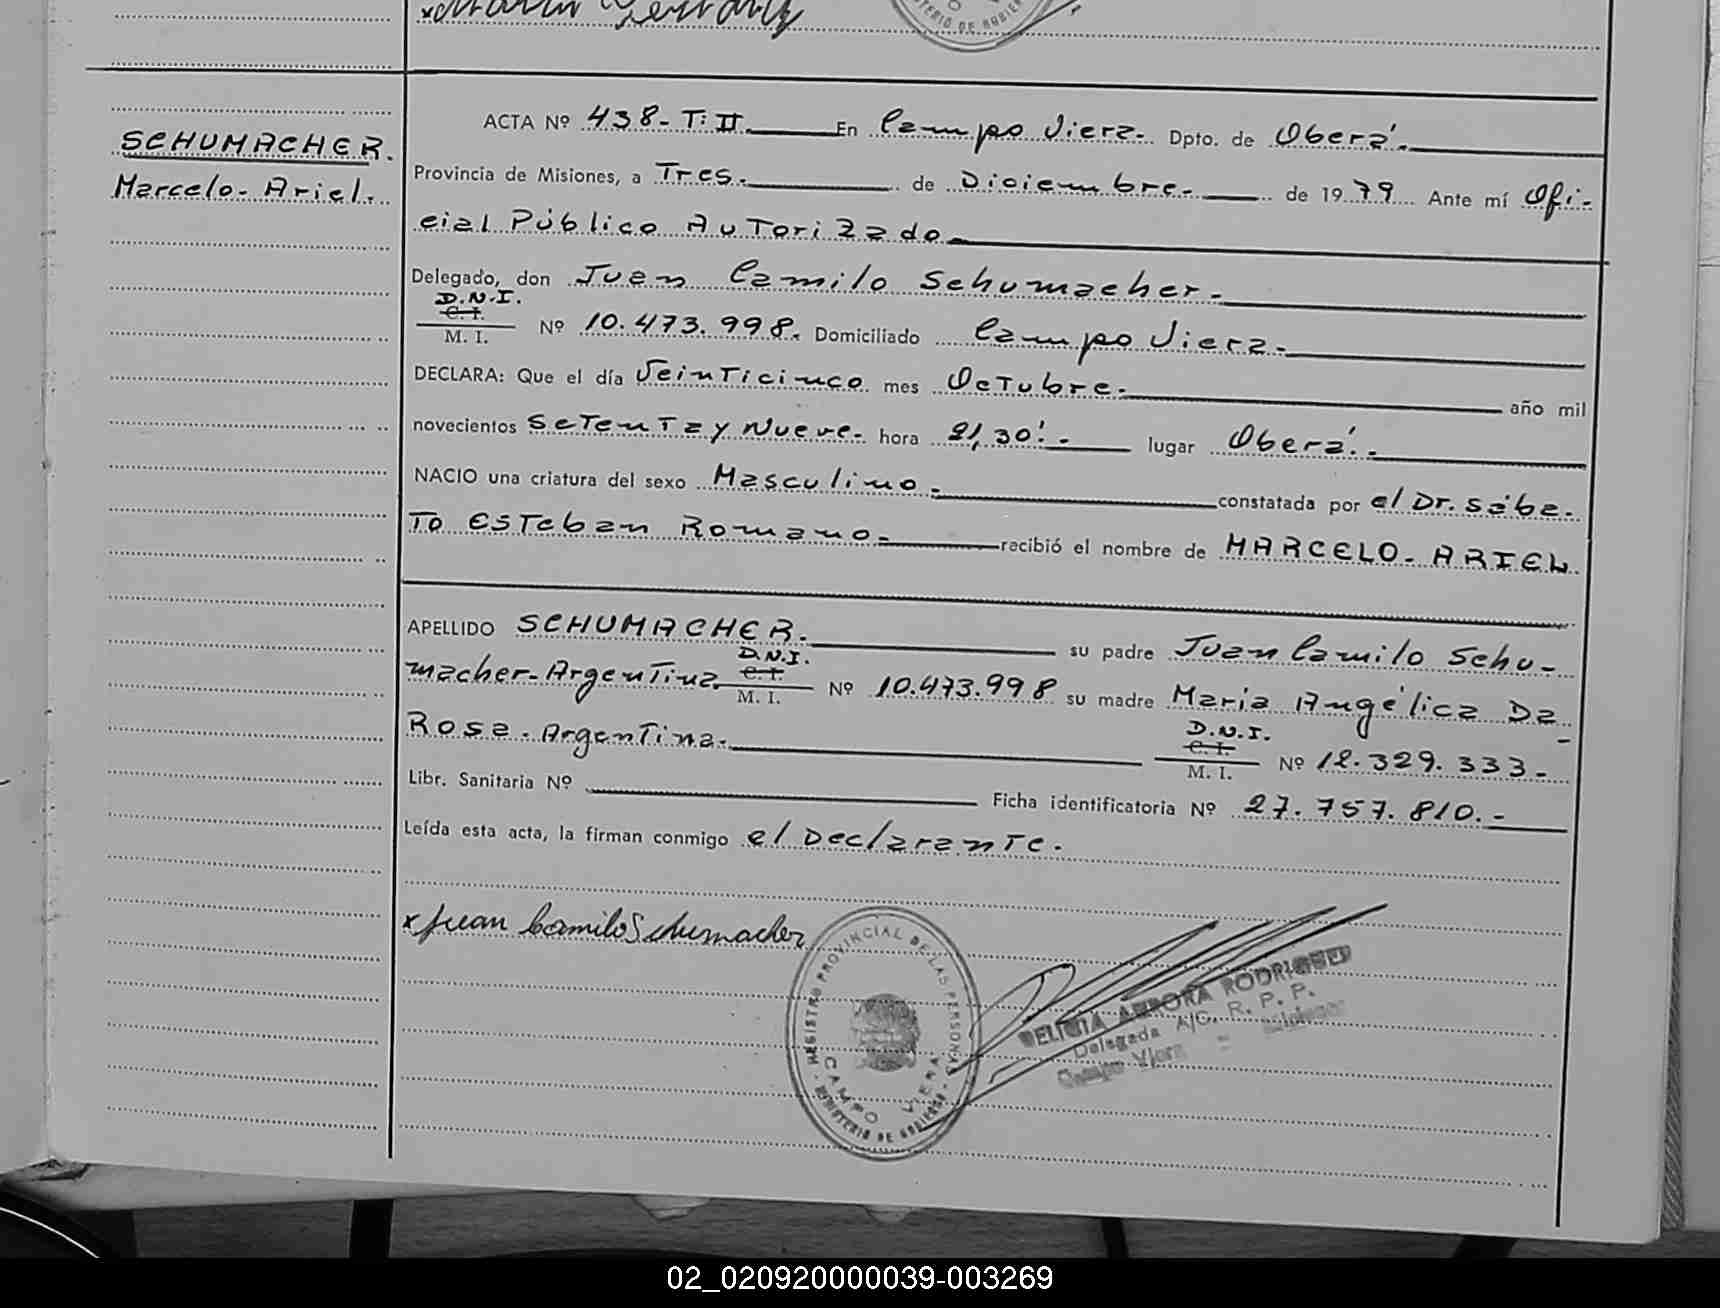 SCHUMACHER.
Marcelo. Ariel.
ACTA Nº 438-T:II En Campo Viera. Dpto. de Oberá.
Provincia de Misiones, a Tres. de Diciembre. de 1979 Ante mí Ofi-
cial Público Autorizado
Delegado, don Juan Camilo Schumacher.
D.N.I.
C. I.
M. I. Nº 10.473.998. Domiciliado Campo Viera.
DECLARA: Que el día Veinticinco mes Octubre. año mil
novecientos Setenta y Nueve. hora 21,30'. lugar Oberá.
NACIO una criatura del sexo Masculino. constatada por el Dr. Sábe.
To Esteban Romano. recibió el nombre de MARCELO. ARIEL
APELLIDO SCHUMACHER. su padre Juan Camilo Schu-
macher-Argentina D.N.I. C. I. M. I. Nº 10.473.998 su madre María Angélica Da
Rosa. Argentina. D.N.I. C. I. M. I. Nº 12.329.333-
Libr. Sanitaria Nº Ficha identificatoria Nº 27.757.810.-
Leída esta acta, la firman conmigo el Declarante.
x Juan Camilo Schumacher
REGISTRO PROVINCIAL DE LAS PERSONAS
CAMPO VIERA
MINISTERIO DE GOBIERNO
DELICIA AURORA RODRIGUEZ
Delegada A/C. R. P. P.
Campo Viera - Misiones
02_020920000039-003269